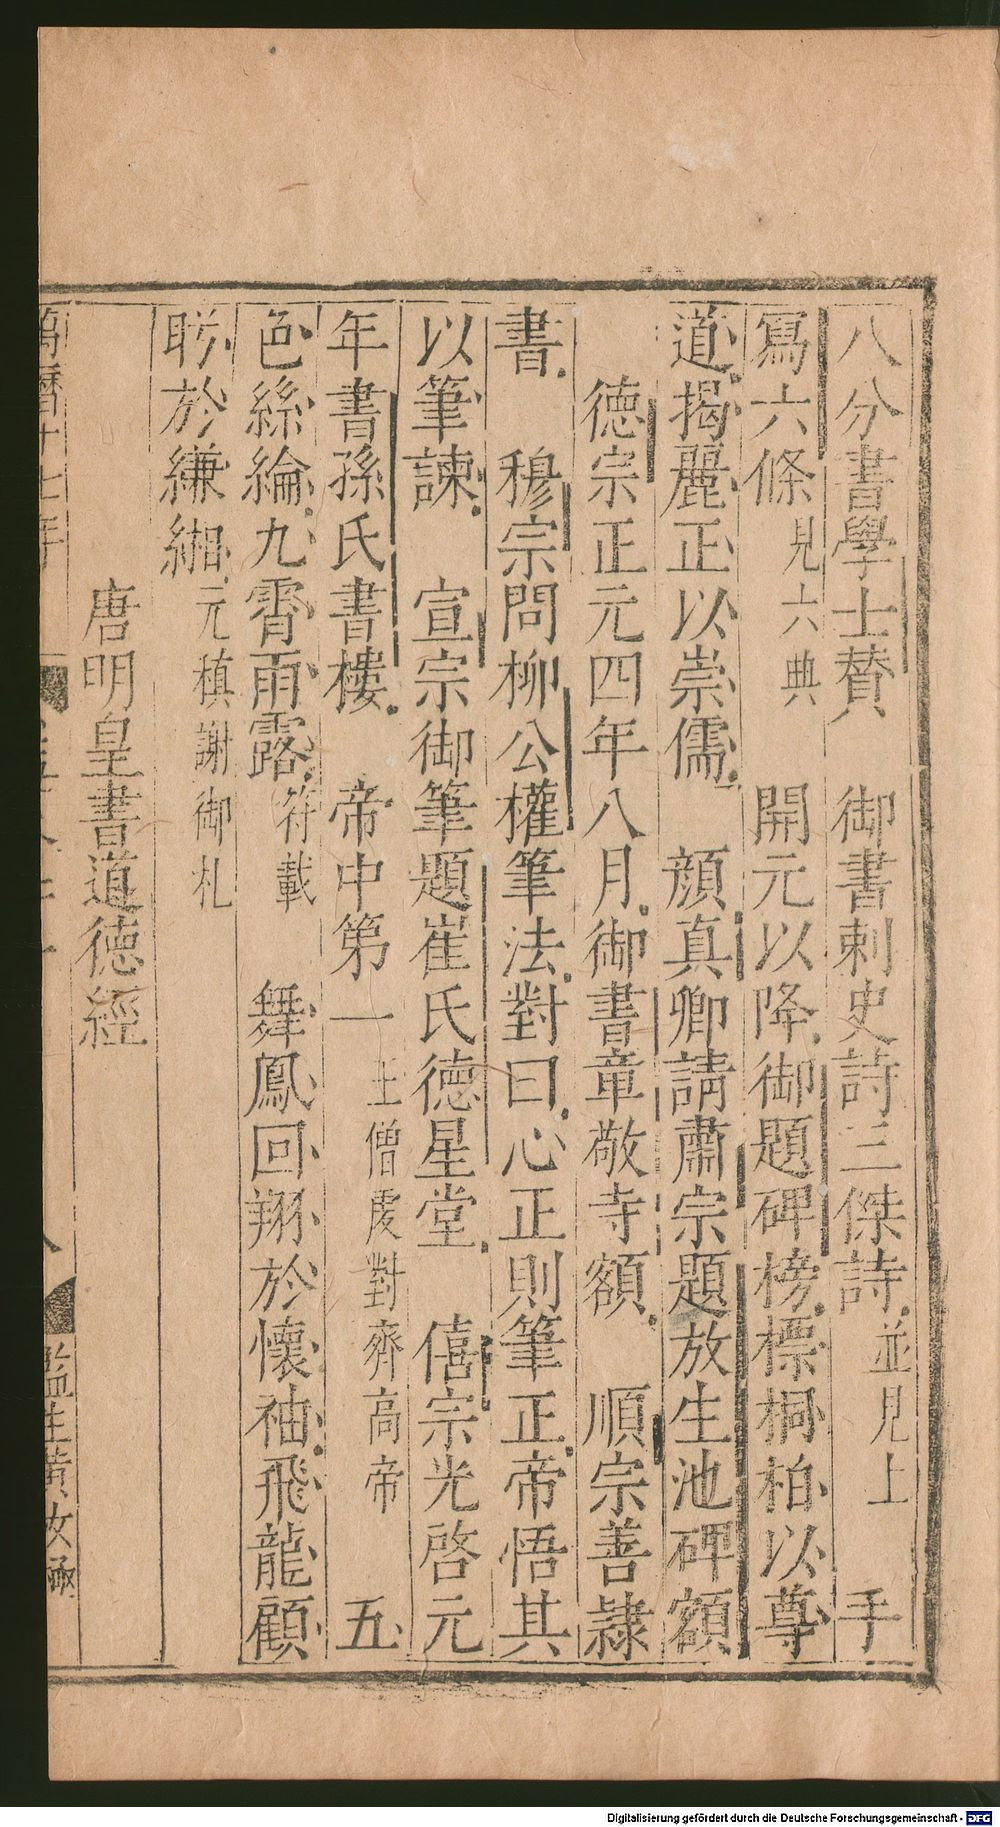 八分書學士賛　御書刺史詩三傑詩並見上　手
寫六條見六典　開元以降御題碑榜標桐栢以尊
道揭麗正以崇儒　顔真卿請肅宗題放生池碑額
德宗正元四年八月御書章敬寺額　順宗善隷
書　穆宗問柳公權筆法對曰心正則筆正帝悟其
以筆諫　宣宗御筆題崔氏德星堂　僖宗光啓元
年書孫氏書樓　帝中第一王僧虔對齊高帝　五
色絲綸九霄雨露符載　舞鳳回翔於懷袖飛龍顧
眄於縑緗元槙謝御札
唐明皇書道德經
萬曆十七年
監生黄汝極
Digitalisierung gefördert durch die Deutsche Forschungsgemeinschaft - DFG